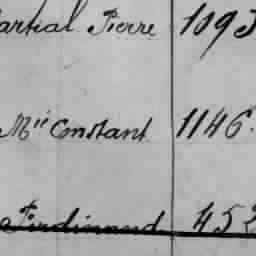 artial Pierre 1093
Mie Constant 1146.
Ferdinand 452